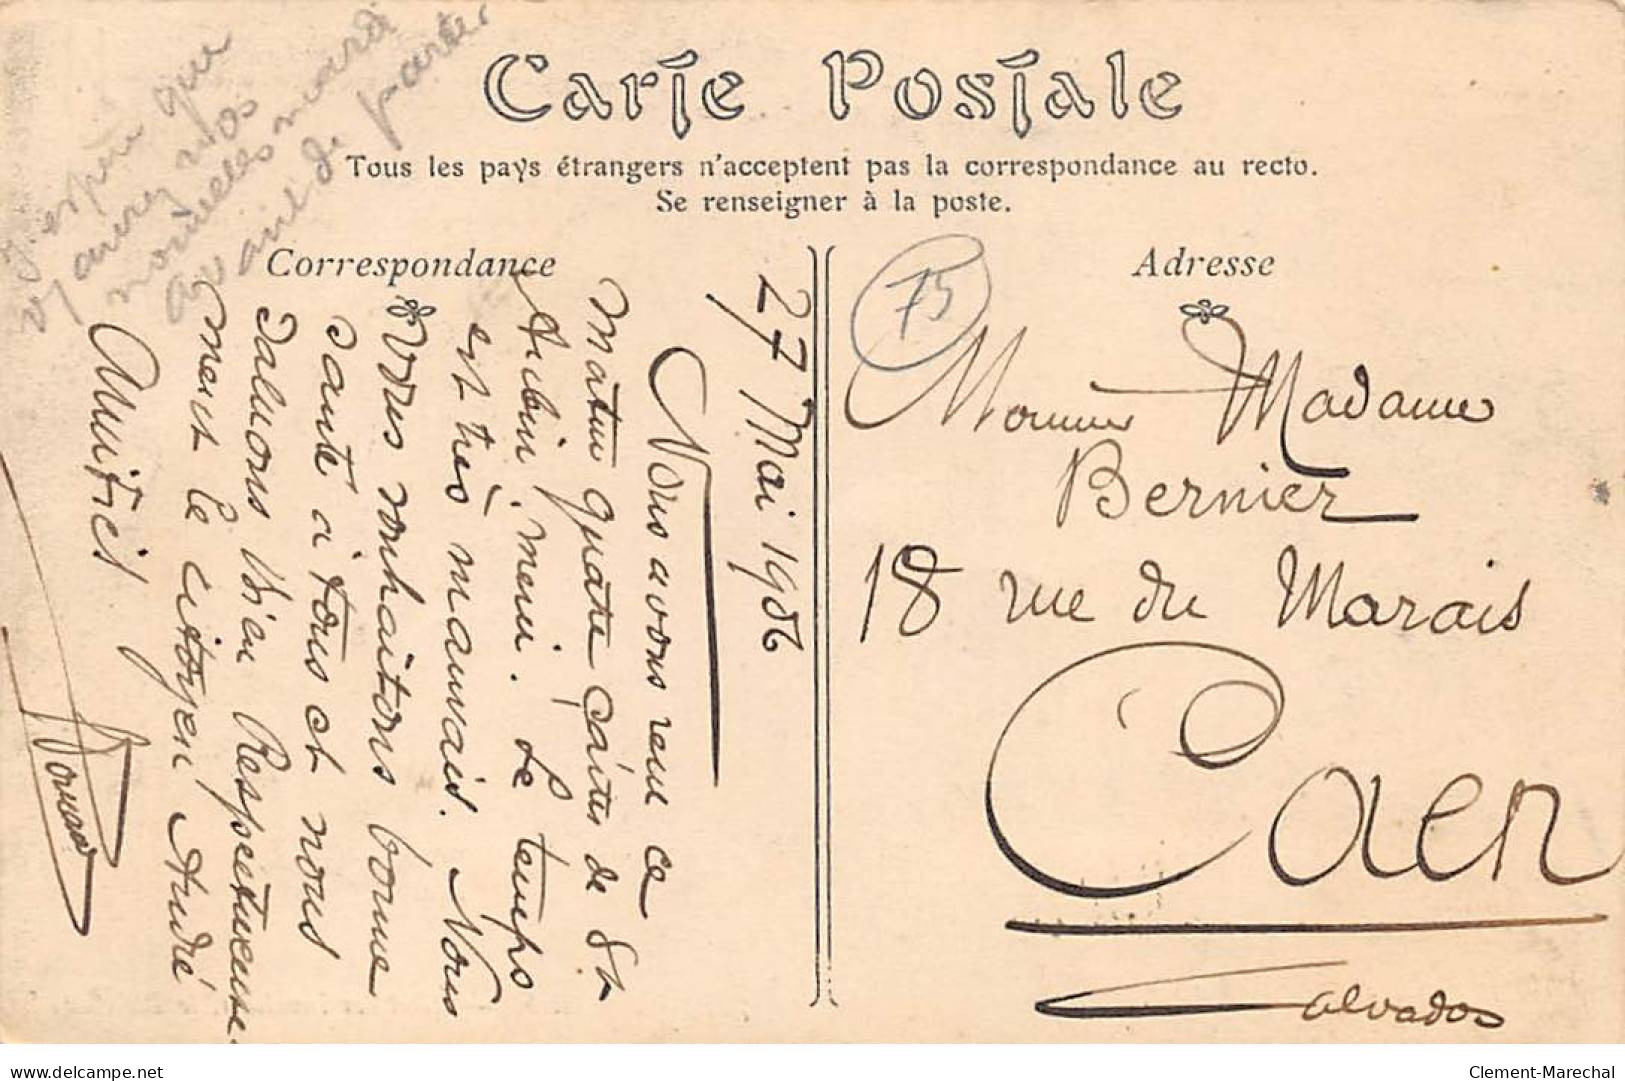 J'espère que
v/ aurez nos
nouvelles mardi
avant de partir
Carte Postale
Tous les pays étrangers n'acceptent pas la correspondance au recto.
Se renseigner à la poste.
Correspondance
27 Mai 1906
Nous avons reçu ce
matin quatre cartes de St
Aubin, merci. Le temps
est très mauvais. Nous
Vous souhaitons bonne
santé à tous et nous
saluons bien Respectueuse-
ment le citoyen André
Amitiés
Adresse
75
Madame
Bernier
18 rue du Marais
Caen
Calvados
delcampe.net
Clement-Marechal